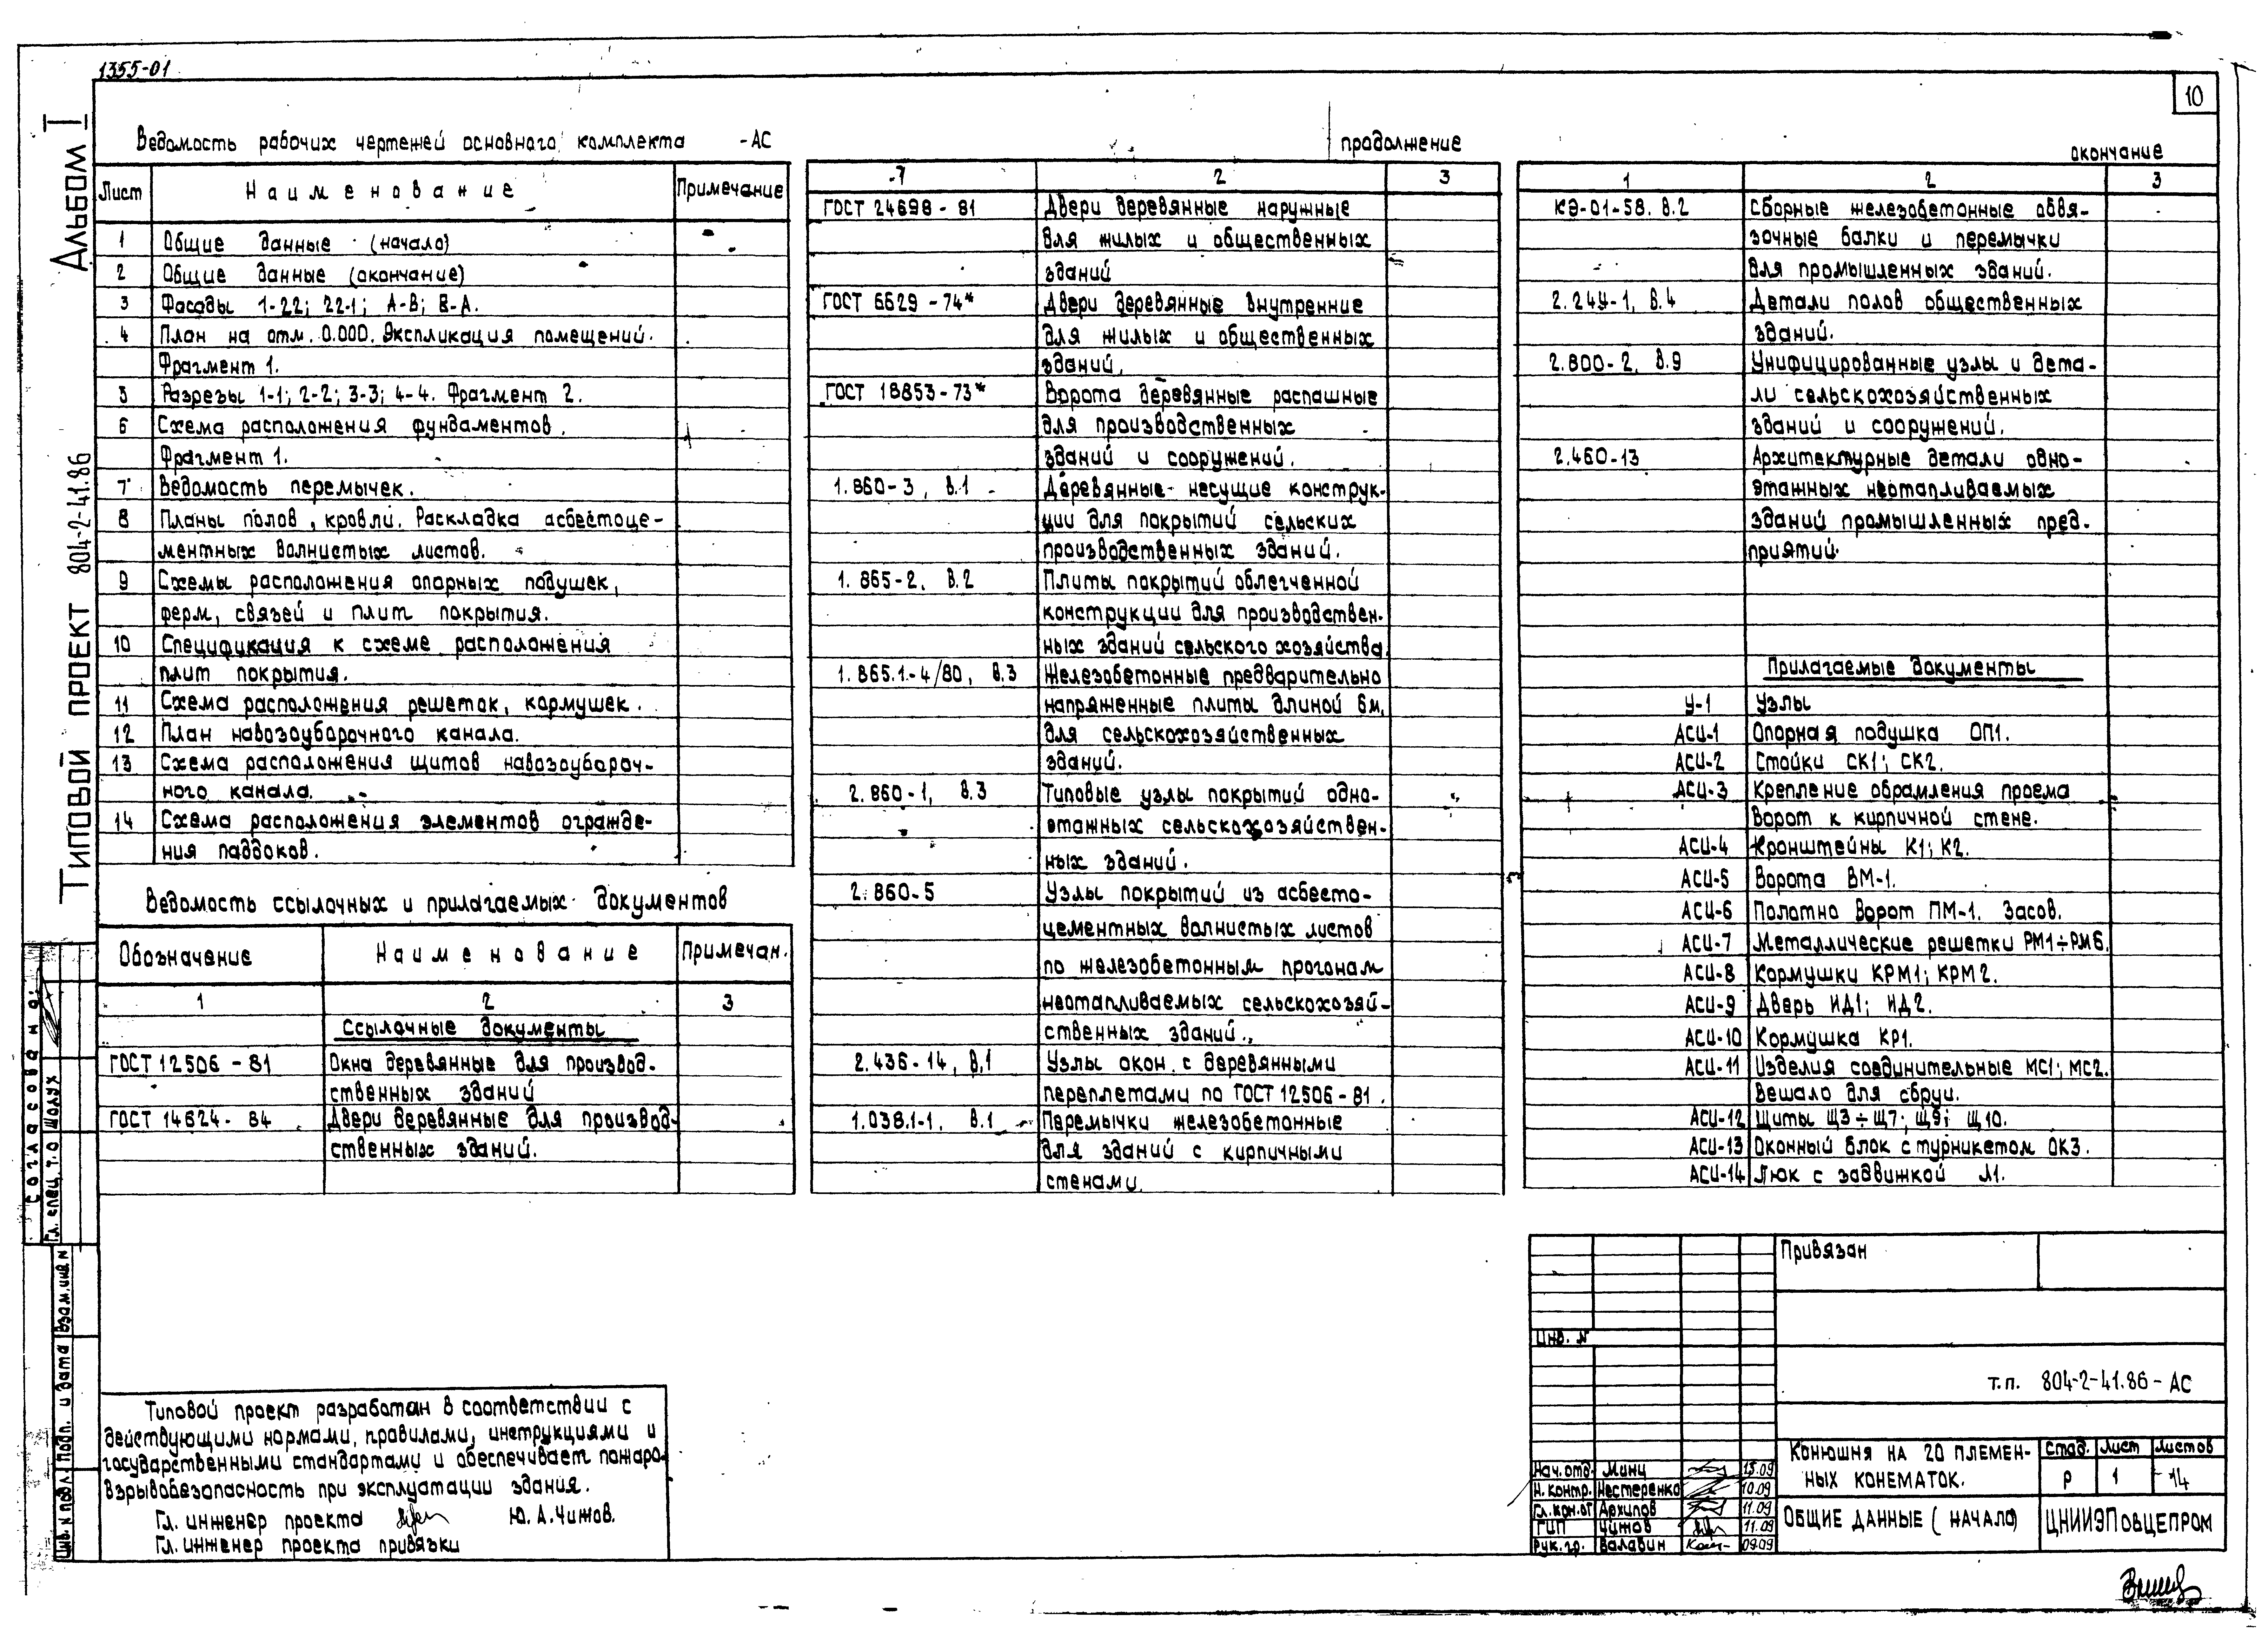 1355-01
10
Альбом I
Типовой проект 804-2-41.86
Ведомость рабочих чертежей основного комплекта -АС
Лист Наименование Примечание
1 Общие данные (начало)
2 Общие данные (окончание)
3 Фасады 1-22; 22-1; А-В; В-А.
4 План на отм. 0.000. Экспликация помещений.
Фрагмент 1.
5 Разрезы 1-1; 2-2; 3-3; 4-4. Фрагмент 2.
6 Схема расположения фундаментов.
Фрагмент 1.
7 Ведомость перемычек.
8 Планы полов, кровли. Раскладка асбестоце-
ментных волнистых листов.
9 Схемы расположения опорных подушек,
ферм, связей и плит покрытия.
10 Спецификация к схеме расположения
плит покрытия.
11 Схема расположения решеток, кормушек.
12 План навозоуборочного канала.
13 Схема расположения щитов навозоубороч-
ного канала.
14 Схема расположения элементов огражде-
ния паддоков.
Ведомость ссылочных и прилагаемых документов
Обозначение Наименование Примечан.
1 2 3
Ссылочные документы
ГОСТ 12506-81 Окна деревянные для производ-
ственных зданий
ГОСТ 14624-84 Двери деревянные для производ-
ственных зданий.
продолжение
1 2 3
ГОСТ 24698-81 Двери деревянные наружные
для жилых и общественных
зданий
ГОСТ 6629-74* Двери деревянные внутренние
для жилых и общественных
зданий.
ГОСТ 18853-73* Ворота деревянные распашные
для производственных
зданий и сооружений.
1.860-3, в.1 Деревянные несущие конструк-
ции для покрытий сельских
производственных зданий.
1.865-2. в.2 Плиты покрытий облегченной
конструкции для производствен-
ных зданий сельского хозяйства.
1.865.1-4/80, в.3 Железобетонные предварительно
напряженные плиты длиной 6м,
для сельскохозяйственных
зданий.
2.860-1, в.3 Типовые узлы покрытий одно-
этажных сельскохозяйствен-
ных зданий.
2.860-5 Узлы покрытий из асбесто-
цементных волнистых листов
по железобетонным прогонам
неотапливаемых сельскохозяй-
ственных зданий.
2.436-14, в.1 Узлы окон с деревянными
переплетами по ГОСТ 12506-81.
1.038.1-1, в.1 Перемычки железобетонные
для зданий с кирпичными
стенами.
окончание
1 2 3
КЭ-01-58. в.2 Сборные железобетонные обвя-
зочные балки и перемычки
для промышленных зданий.
2.244-1, в.4 Детали полов общественных
зданий.
2.800-2, в.9 Унифицированные узлы и дета-
ли сельскохозяйственных
зданий и сооружений.
2.460-13 Архитектурные детали одно-
этажных неотапливаемых
зданий промышленных пред-
приятий.
Прилагаемые документы
У-1 Узлы
АСИ-1 Опорная подушка ОП1.
АСИ-2 Стойки СК1; СК2.
АСИ-3 Крепление обрамления проема
ворот к кирпичной стене.
АСИ-4 Кронштейны К1; К2.
АСИ-5 Ворота ВМ-1.
АСИ-6 Полотно ворот ПМ-1. Засов.
АСИ-7 Металлические решетки РМ1÷РМ6.
АСИ-8 Кормушки КРМ1; КРМ2.
АСИ-9 Дверь ИД1; ИД2.
АСИ-10 Кормушка КР1.
АСИ-11 Изделия соединительные МС1; МС2.
Вешало для сбруи.
АСИ-12 Щиты Щ3÷Щ7; Щ9; Щ10.
АСИ-13 Оконный блок с турникетом ОК3.
АСИ-14 Люк с задвижкой Л1.
Согласовано:
Гл. спец. т.о Шолух
Инв. N подл. Подп. и дата Взам. инв N
Типовой проект разработан в соответствии с
действующими нормами, правилами, инструкциями и
государственными стандартами и обеспечивает пожаро-
взрывобезопасность при эксплуатации здания.
Гл. инженер проекта Ю.А.Чижов.
Гл. инженер проекта привязки
Привязан
Инв. N
т.п. 804-2-41.86-АС
Нач.отд. Минц 15.09
Н.контр. Нестеренко 10.09
Гл.кон.от Архипов 11.09
ГИП Чижов 11.09
Рук.гр. Валавин 09.09
Конюшня на 20 племен-
ных конематок.
Стад. Лист Листов
Р 1 14
Общие данные (начало)
ЦНИИЭПовцепром